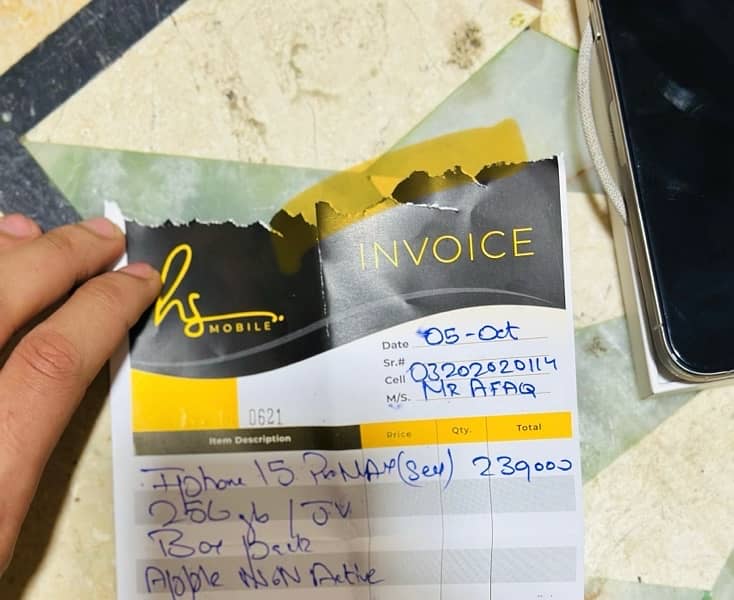 hs
MOBILE
INVOICE
Date 05-Oct
Sr.#
Cell 03202020114
M/S. MR AFAQ
0621
Item Description Price Qty. Total
Iphone 15 Pro MAX 239000
256 gb / JV
Box Pack
Apple NON Active